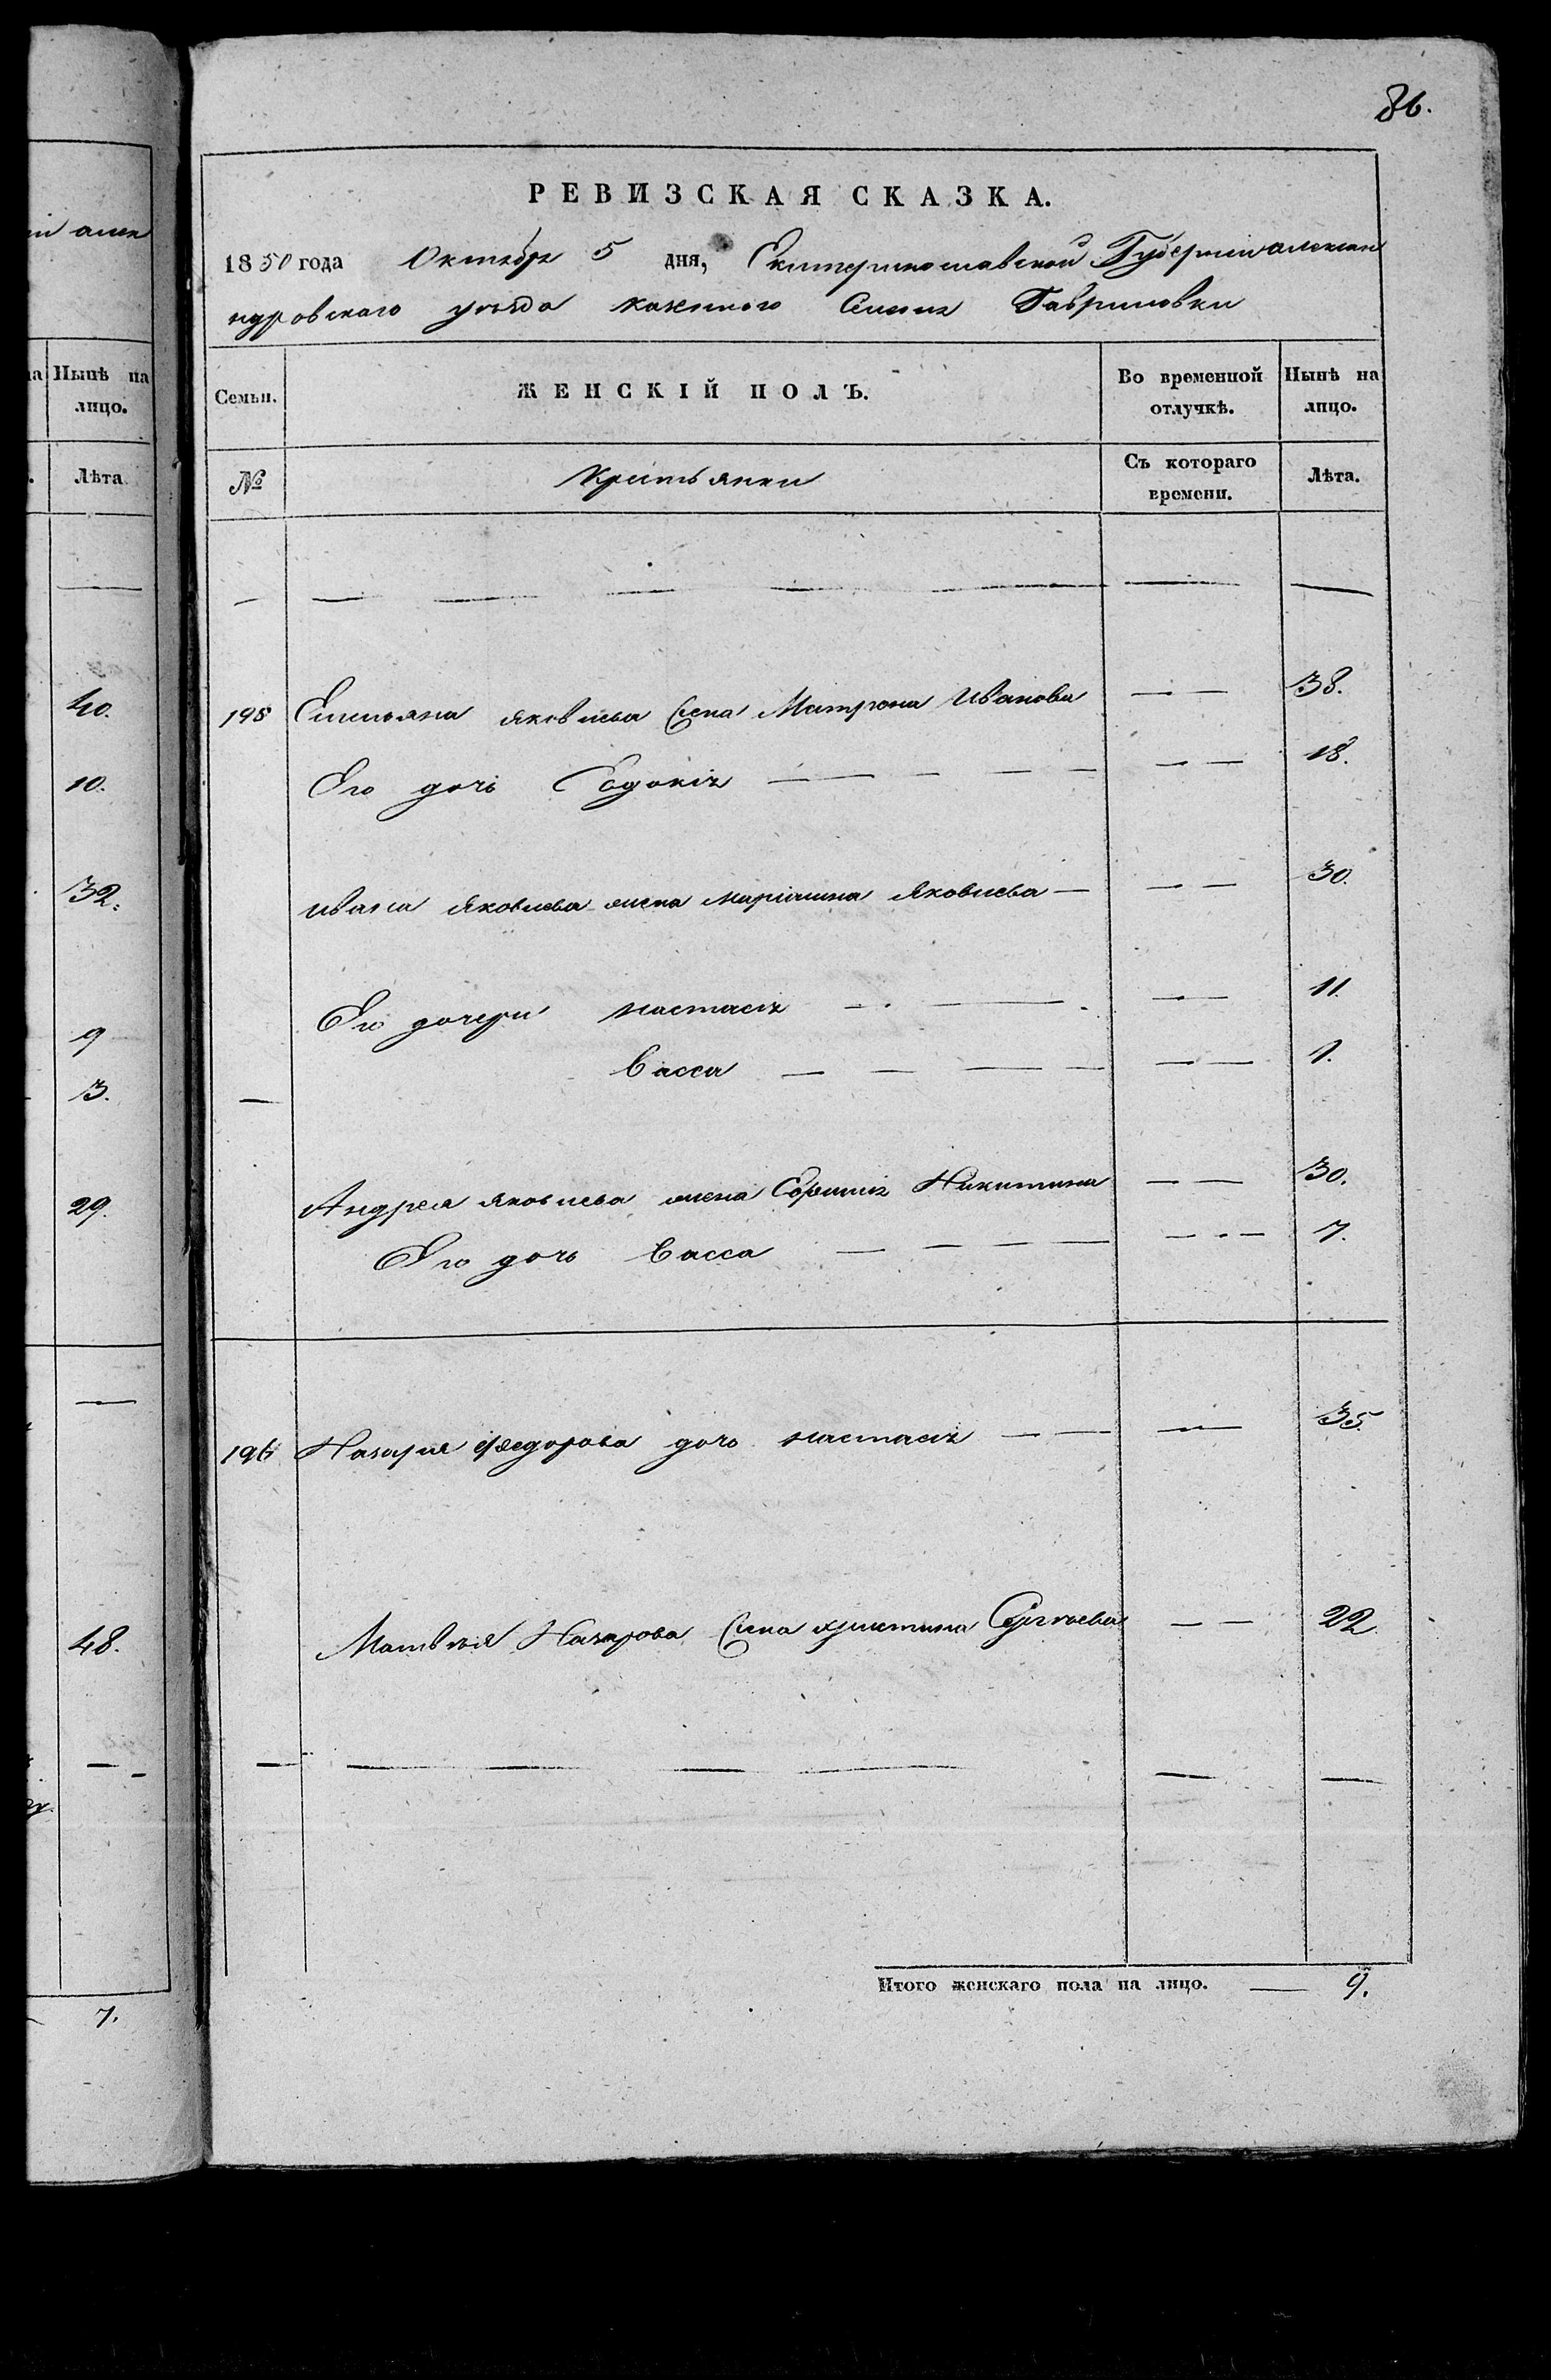 ій алек
на Нынѣ на
лицо.
Лѣта
40.
10.
32.
9
3.
29.
48.
7.
86.
РЕВИЗСКАЯ СКАЗКА.
1850 года Октября 5 дня, Екатеринославской Губерніи алексан
ндровскаго уѣзда казенного Селенія Гавриловки
Семьи. ЖЕНСКІЙ ПОЛЪ. Во временной отлучкѣ. Нынѣ на лицо.
№ Крестьянки Съ котораго времени. Лѣта.
195 Емельяна яковлева жена Матрона Иванова — — 38.
Его дочь Евдокія — — 18.
ивана Яковлева жена маріамна Яковлева — — — 30.
Его дочери настасія — — 11.
васса — — 1.
Андрея яковлева жена Евфимія Никитина — — 30.
Его дочь васса — — 7.
196 Назария Федорова дочь настасія — — 35.
Матвѣя Назарова жена христина Сергѣева — — 22.
Итого женскаго пола на лицо. — 9.